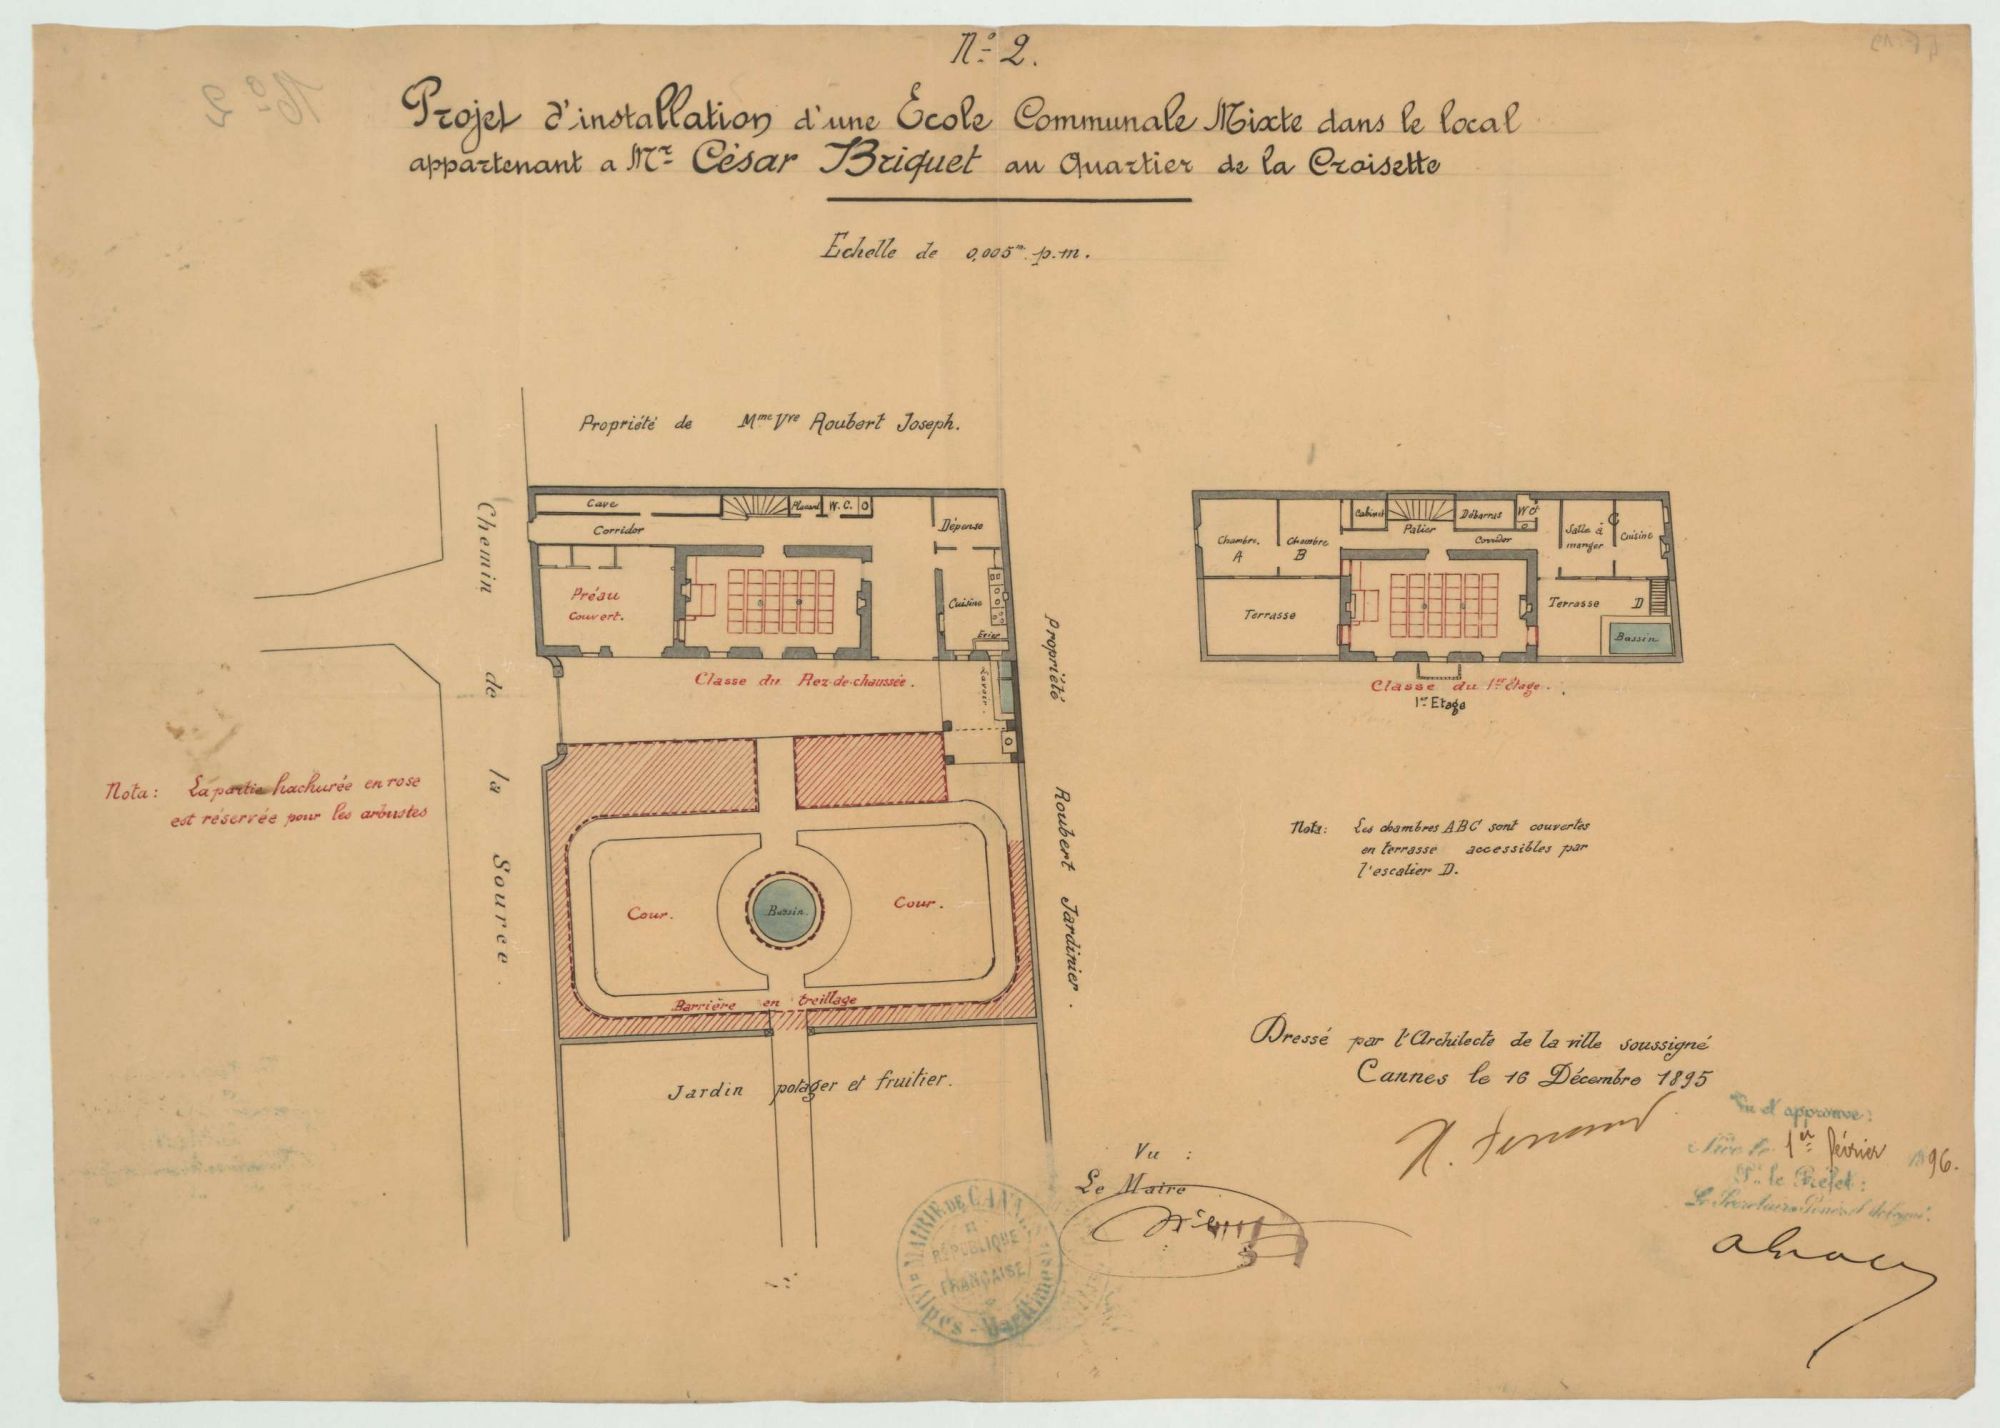 N.º 2.
Projet d'installation d'une École Communale Mixte dans le local
appartenant a Mr César Briquet au Quartier de la Croisette
Echelle de 0,005m. p.m.
Propriété de Mme Vve Roubert Joseph.
Cave
Placard
W.C.
Corridor
Dépense
Préau
Couvert.
Cuisine
Evier
Classe du Rez-de-chaussée.
Lavoir.
Chemin de la Source.
Propriété Roubert Jardinier.
Nota: La partie hachurée en rose
est réservée pour les arbustes
Cour.
Bassin.
Cour.
Barrière en treillage
Jardin potager et fruitier.
Cabinet
Débarras
WC
Palier
Chambre.
A
Chambre
B
Corridor
Salle à
manger
C
Cuisine
Terrasse
Terrasse
D
Bassin
Classe du 1er Étage.
1er Etage
Nota: Les chambres A B C sont couvertes
en terrasse accessibles par
l'escalier D.
Dressé par l'Architecte de la ville soussigné
Cannes le 16 Décembre 1895
Vu et approuvé:
Nice le 1er février 1896.
P. le Préfet:
Le Secrétaire Général délégué.
Vu :
Le Maire
MAIRIE DE CANNES
RÉPUBLIQUE
FRANÇAISE
Alpes-Maritimes